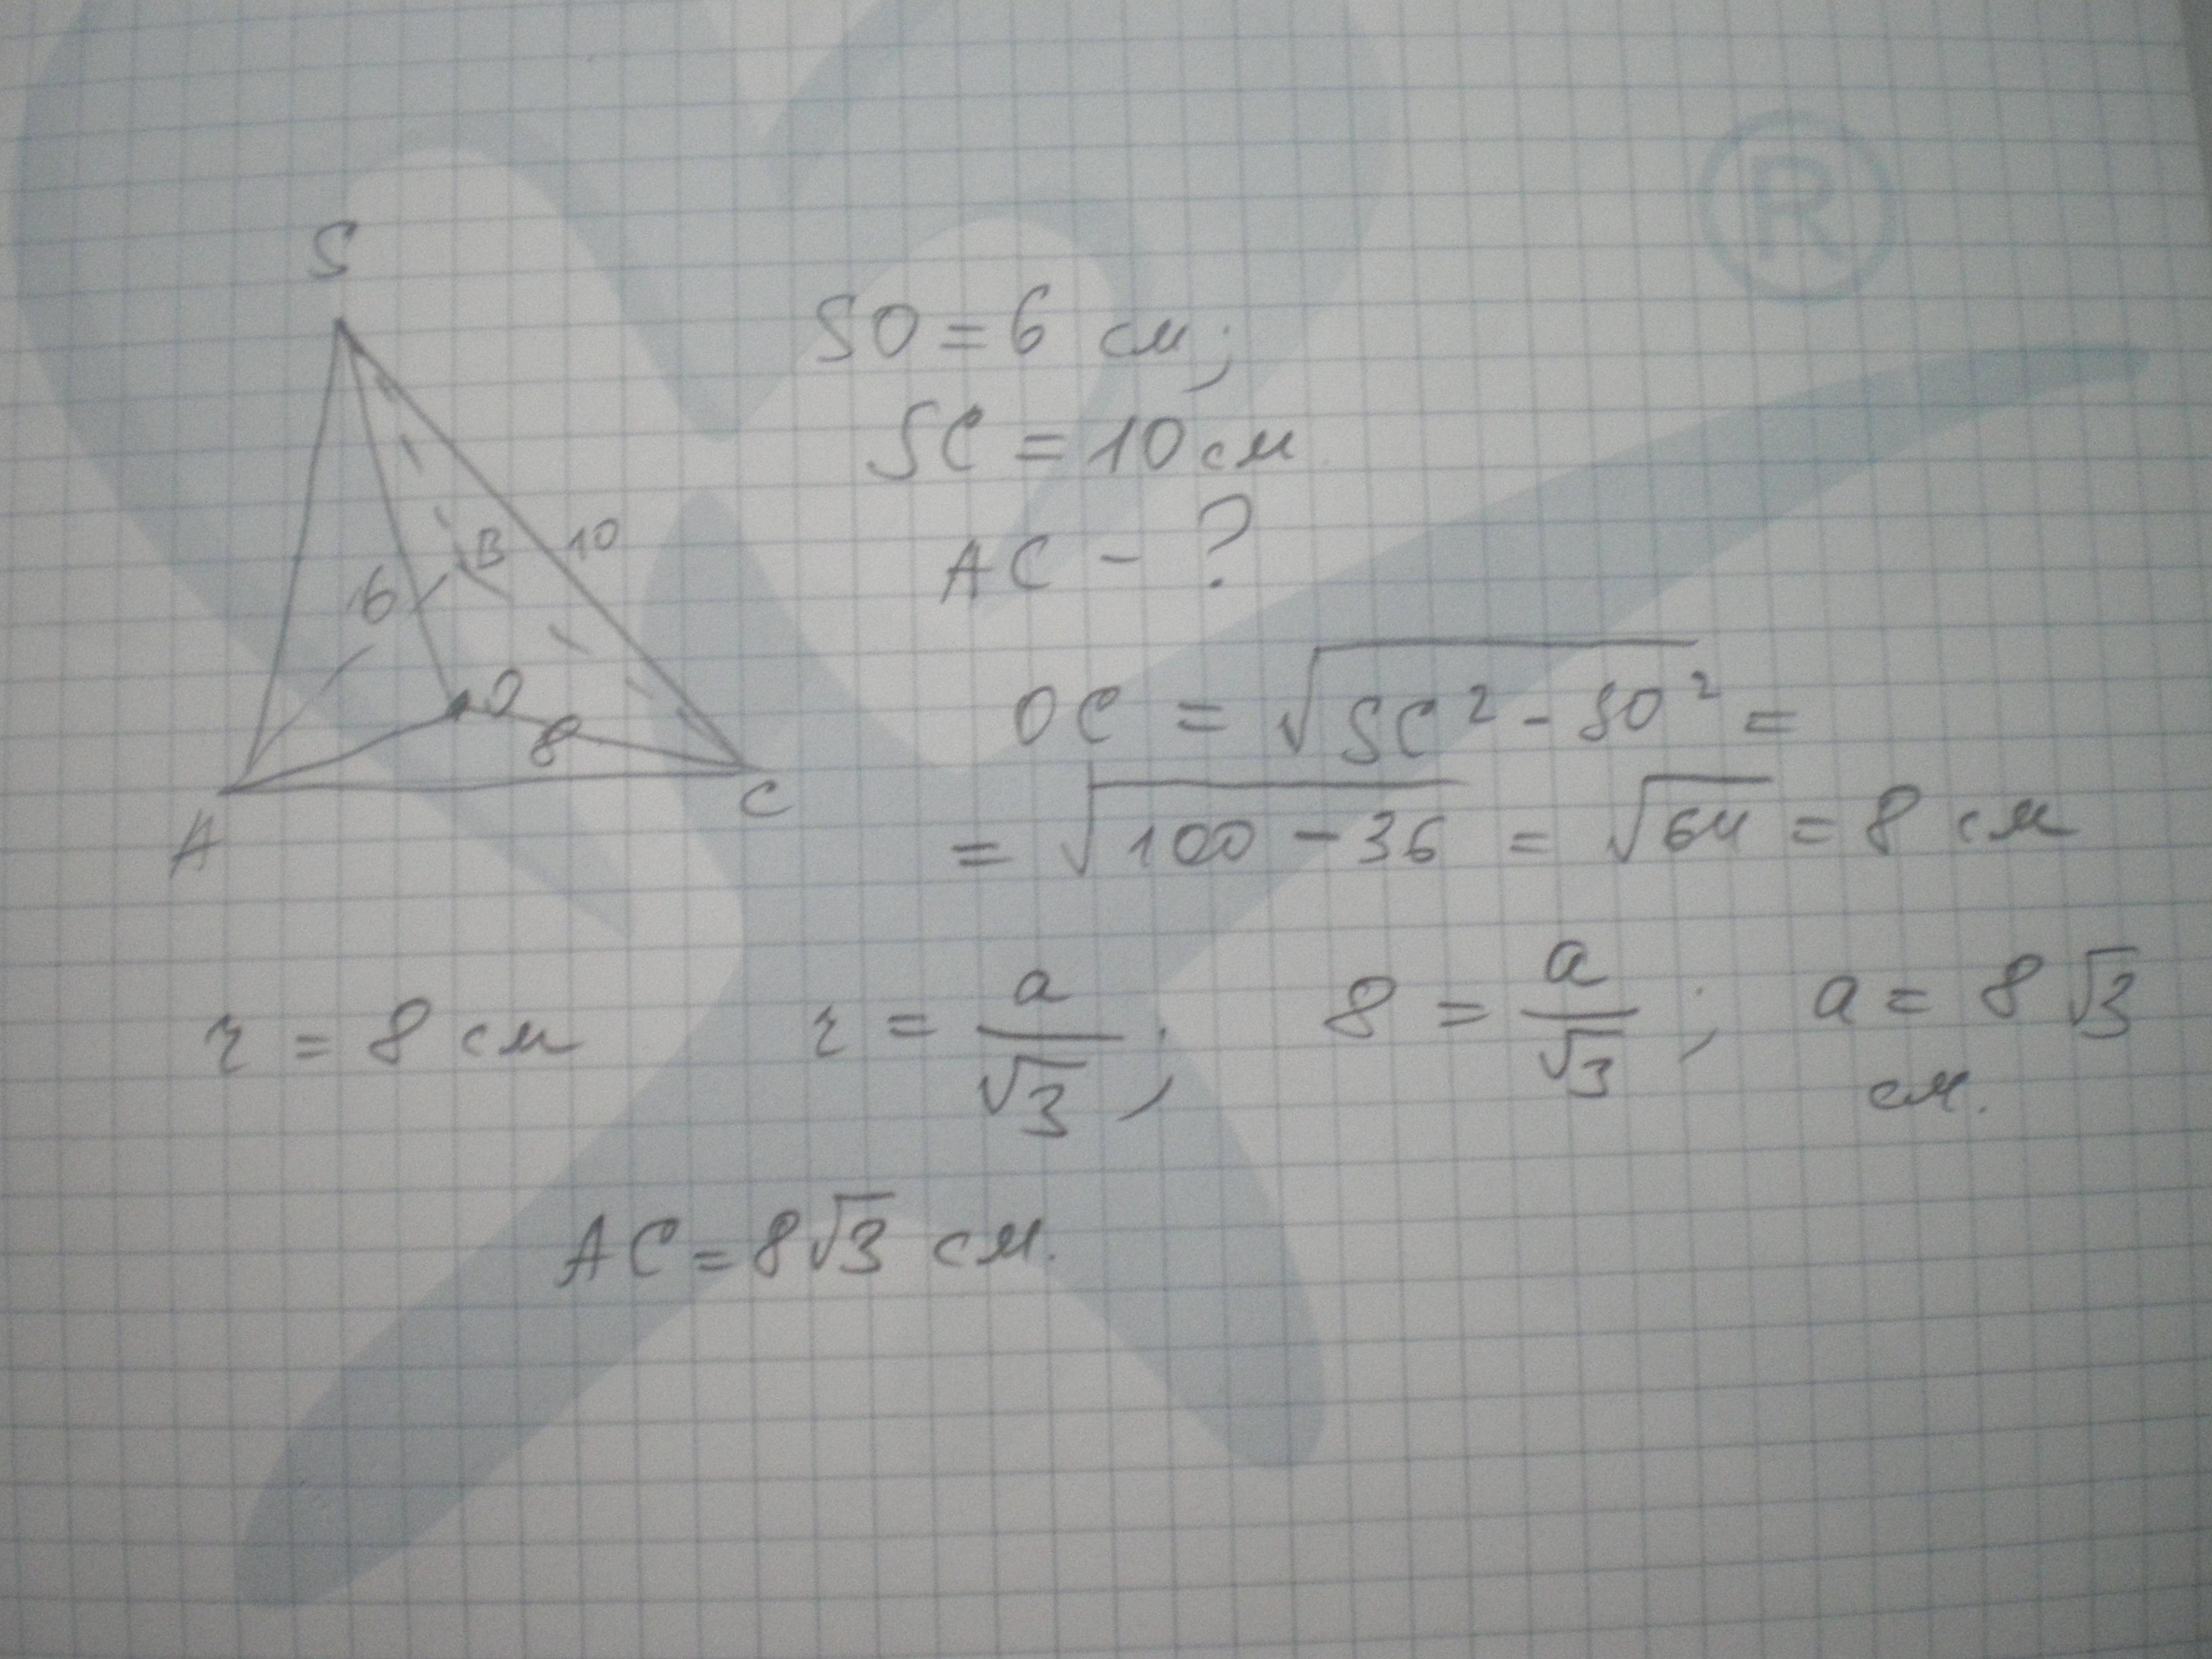 S
B
10
6
O
8
A
C
SO = 6 см;
SC = 10 см
AC - ?
OC = √SC² - SO² =
= √100 - 36 = √64 = 8 см
r = 8 см r = a/√3; 8 = a/√3; a = 8√3
см.
AC = 8√3 см.
®